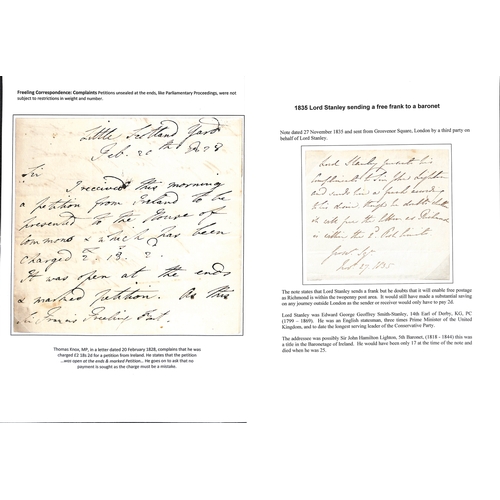 Freeling Correspondence: Complaints Petitions unsealed at the ends, like Parliamentary Proceedings, were not
subject to restrictions in weight and number.
Little Scotland Yard
Feb. 20th 1828
Sir
I received this morning
a petition from Ireland to be
presented to the House of
Commons & which has been
charged
It was open at the ends
& marked petition. As this
Sir Francis Freeling Bart.
Thomas Knox, MP, in a letter dated 20 February 1828, complains that he was
charged £2 18s 2d for a petition from Ireland. He states that the petition
...was open at the ends & marked Petition... He goes on to ask that no
payment is sought as the charge must be a mistake.
1835 Lord Stanley sending a free frank to a baronet
Note dated 27 November 1835 and sent from Grosvenor Square, London by a third party on
behalf of Lord Stanley.
Lord Stanley presents his
compliments to Sir John Lighton
and sends him a frank according
to his desire though he doubts
Grosr Sqr
Nov 27 1835
The note states that Lord Stanley sends a frank but he doubts that it will enable free postage
as Richmond is within the twopenny post area. It would still have made a substantial saving
on any journey outside London as the sender or receiver would only have to pay 2d.
Lord Stanley was Edward George Geoffrey Smith-Stanley, 14th Earl of Derby, KG, PC
(1799 – 1869). He was an English statesman, three times Prime Minister of the United
Kingdom, and to date the longest serving leader of the Conservative Party.
The addressee was possibly Sir John Hamilton Lighton, 5th Baronet, (1818 - 1844) this was
a title in the Baronetage of Ireland. He would have been only 17 at the time of the note and
died when he was 25.